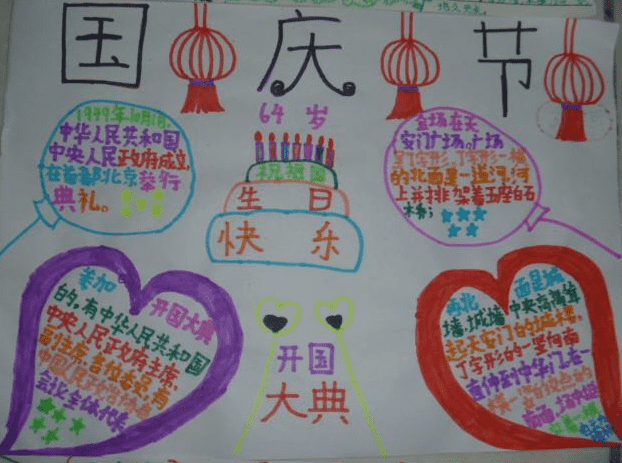 国 庆 节
1949年10月1日,
中华人民共和国
中央人民政府成立,
在首都北京举行
典礼。
64 岁
祝祖国
生 日
快 乐
会场在天
安门广场。广场
呈丁字形。丁字形一横
的北面是一道河,河
上并排架着五座白石
桥;
参加
开国大典
的,有中华人民共和国
中央人民政府主席,
副主席,各位委员,有
中国人民政治协商
会议全体代表
开国
大典
再北 面是城
墙,城墙中央高高耸
起天安门的城楼,
丁字形的一竖向南
直伸到中华门,在一
横一竖的交点的
南面,场中挺